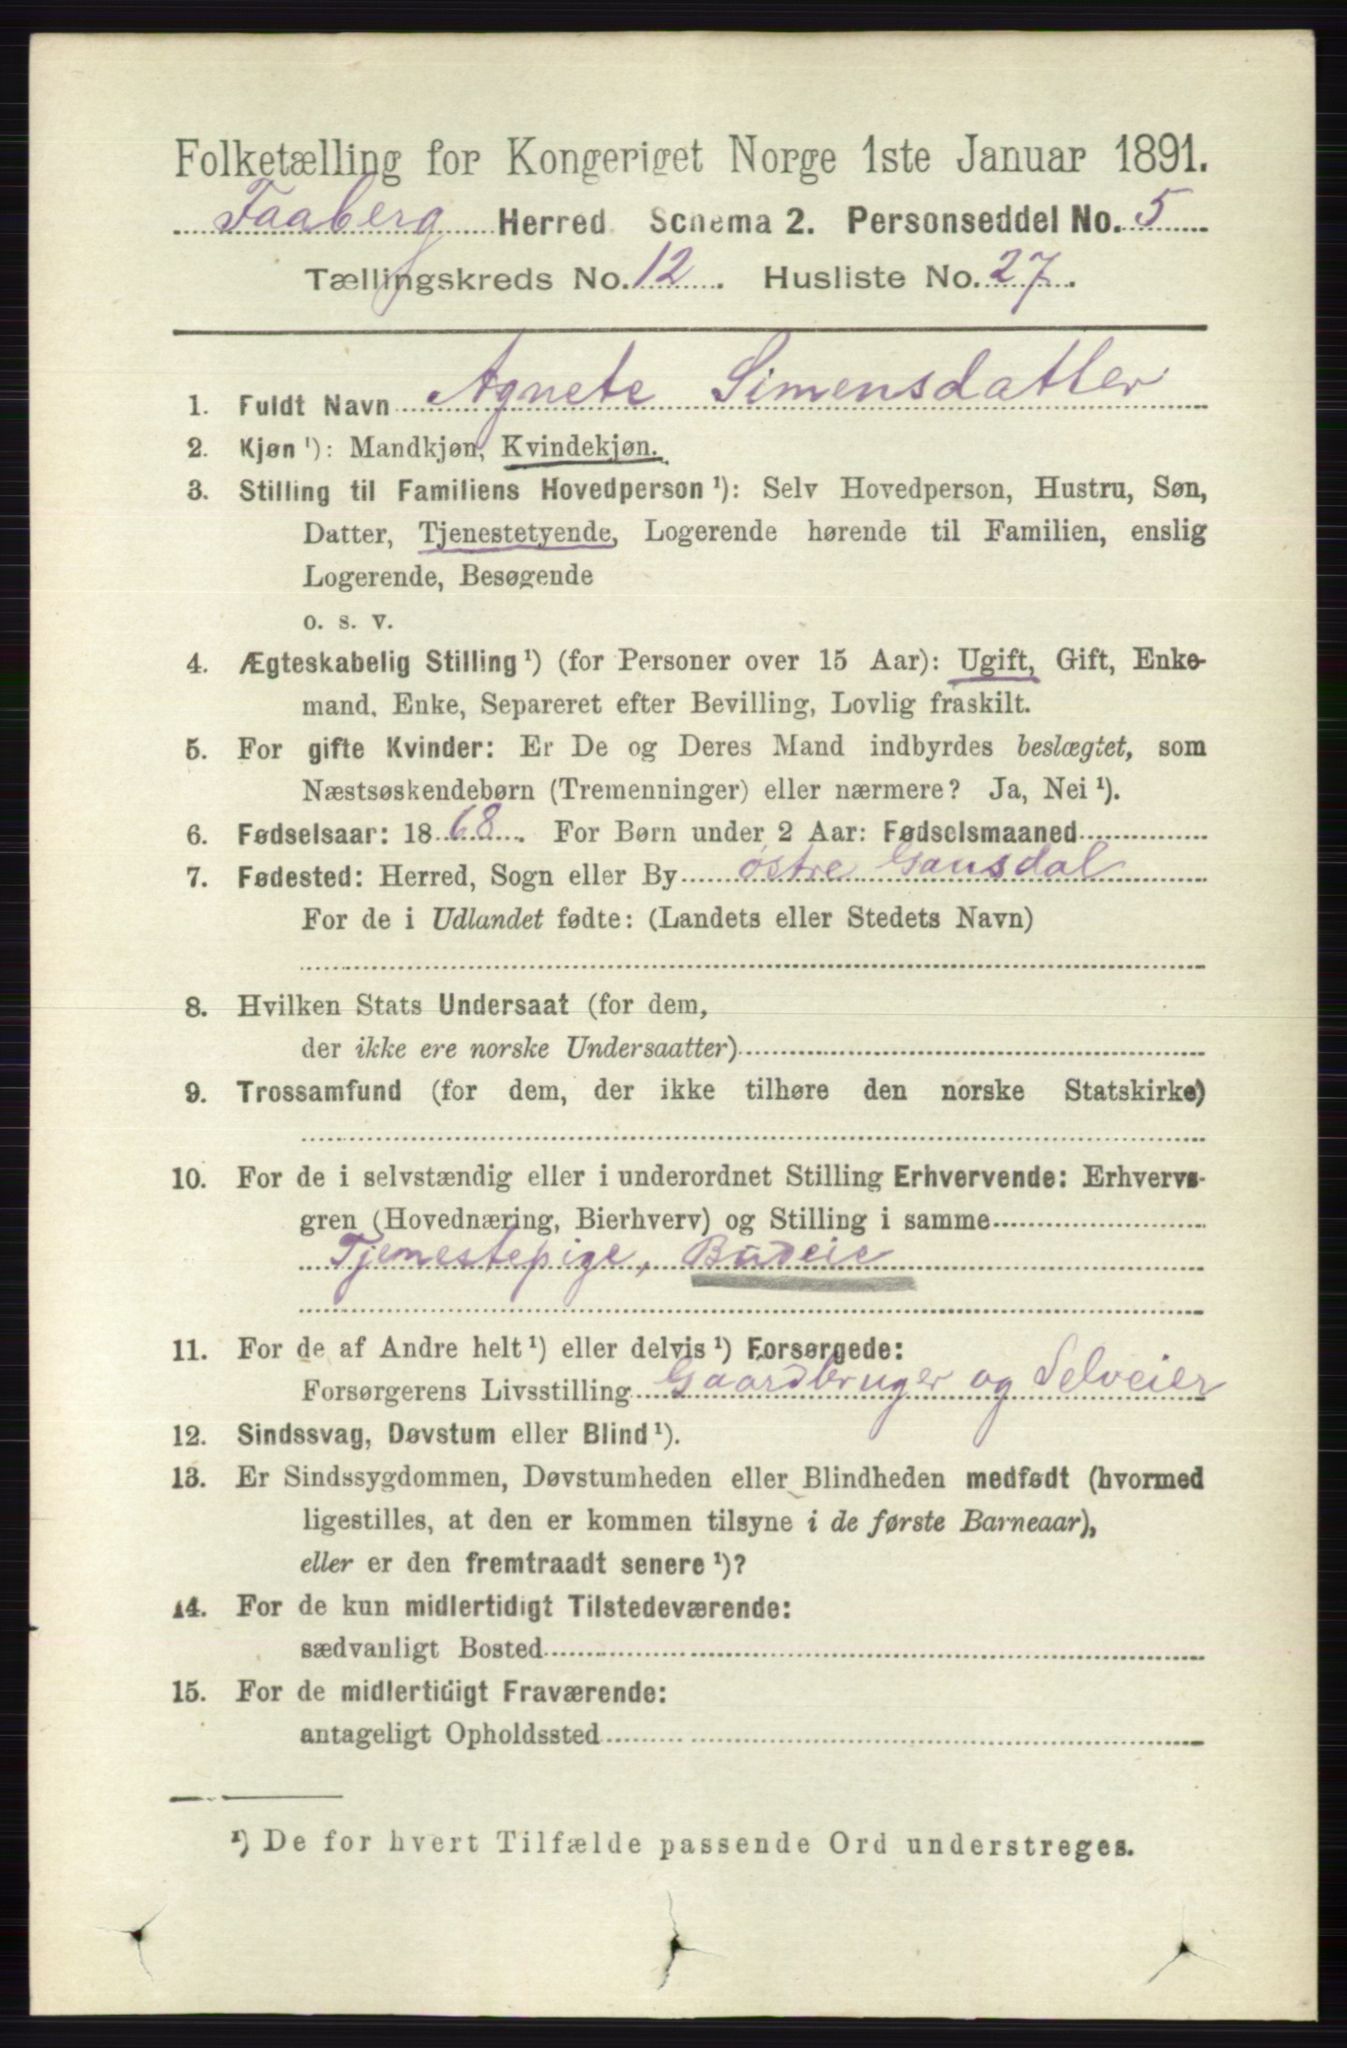 Folketælling for Kongeriget Norge 1ste Januar 1891.
Faaberg Herred. Schema 2. Personseddel No. 5
Tællingskreds No. 12. Husliste No. 27.
1. Fuldt Navn Agnete Simensdatter
2. Kjøn ¹): Mandkjøn, Kvindekjøn.
3. Stilling til Familiens Hovedperson ¹): Selv Hovedperson, Hustru, Søn,
Datter, Tjenestetyende, Logerende hørende til Familien, enslig
Logerende, Besøgende
o. s. v.
4. Ægteskabelig Stilling ¹) (for Personer over 15 Aar): Ugift, Gift, Enke-
mand, Enke, Separeret efter Bevilling, Lovlig fraskilt.
5. For gifte Kvinder: Er De og Deres Mand indbyrdes beslægtet, som
Næstsøskendebørn (Tremenninger) eller nærmere? Ja, Nei ¹).
6. Fødselsaar: 1868. For Børn under 2 Aar: Fødselsmaaned
7. Fødested: Herred, Sogn eller By østre Gausdal
For de i Udlandet fødte: (Landets eller Stedets Navn)
8. Hvilken Stats Undersaat (for dem,
der ikke ere norske Undersaatter)
9. Trossamfund (for dem, der ikke tilhøre den norske Statskirke)
10. For de i selvstændig eller i underordnet Stilling Erhvervende: Erhvervs-
gren (Hovednæring, Bierhverv) og Stilling i samme
Tjenestepige, Budeie
11. For de af Andre helt ¹) eller delvis ¹) Forsørgede:
Forsørgerens Livsstilling Gaardbruger og Selveier
12. Sindssvag, Døvstum eller Blind ¹).
13. Er Sindssygdommen, Døvstumheden eller Blindheden medfødt (hvormed
ligestilles, at den er kommen tilsyne i de første Barneaar),
eller er den fremtraadt senere ¹)?
14. For de kun midlertidigt Tilstedeværende:
sædvanligt Bosted
15. For de midlertidigt Fraværende:
antageligt Opholdssted
¹) De for hvert Tilfælde passende Ord understreges.